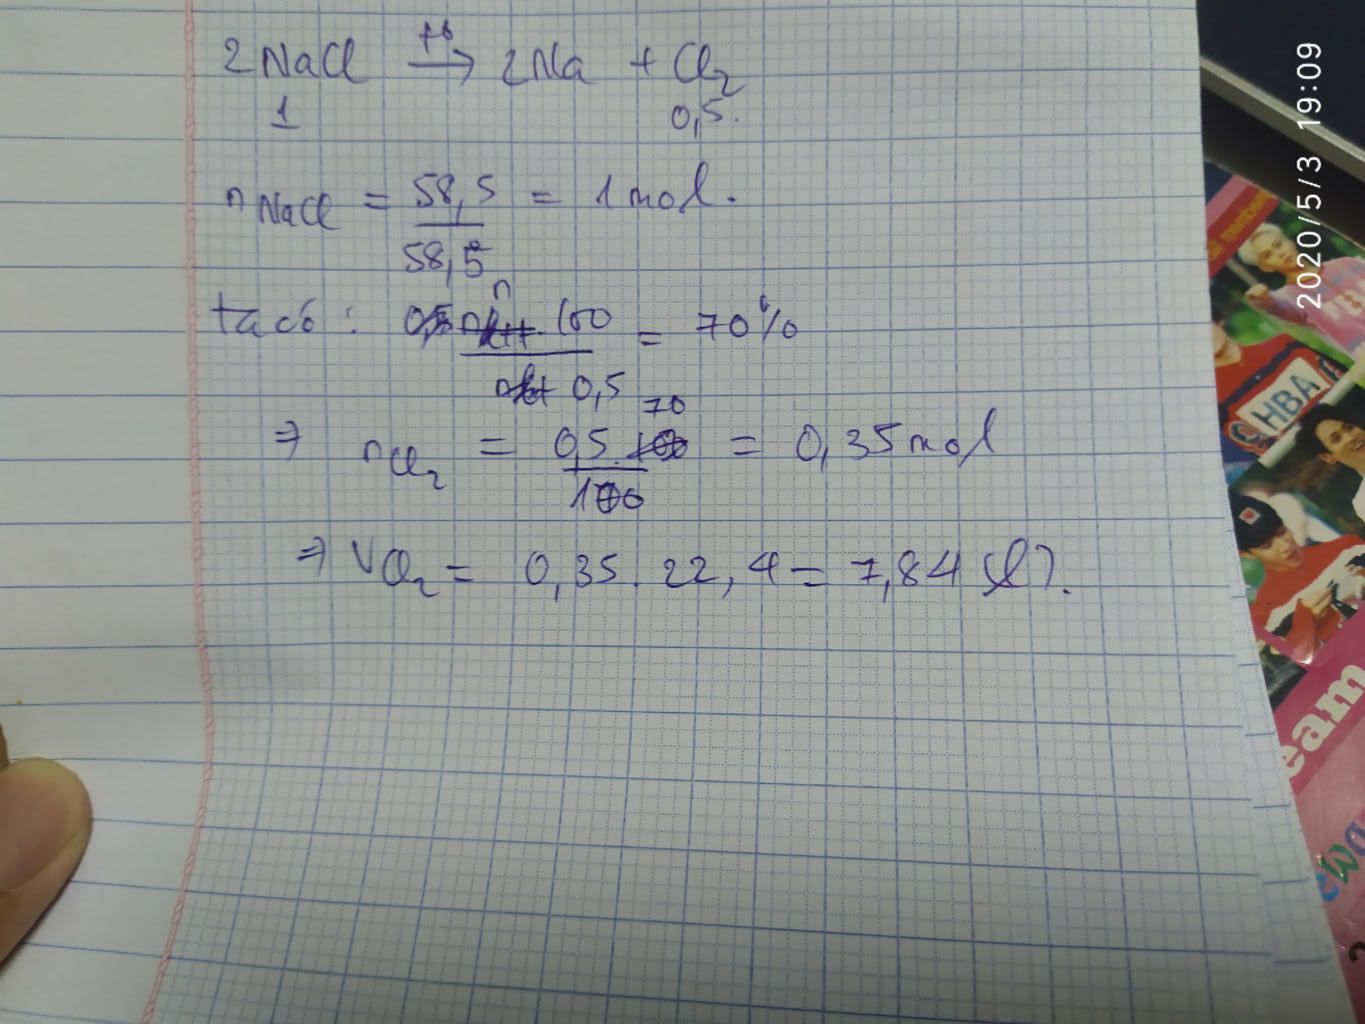 2NaCl → 2Na + Cl2
1 0,5.
nNaCl = 58,5 / 58,5 = 1 mol.
ta có : n . 100 / 0,5 = 70%
⇒ nCl2 = 0,5 . 70 / 100 = 0,35 mol
⇒ VCl2 = 0,35 . 22,4 = 7,84 (l).
2020/5/3 19:09
HBA
eam